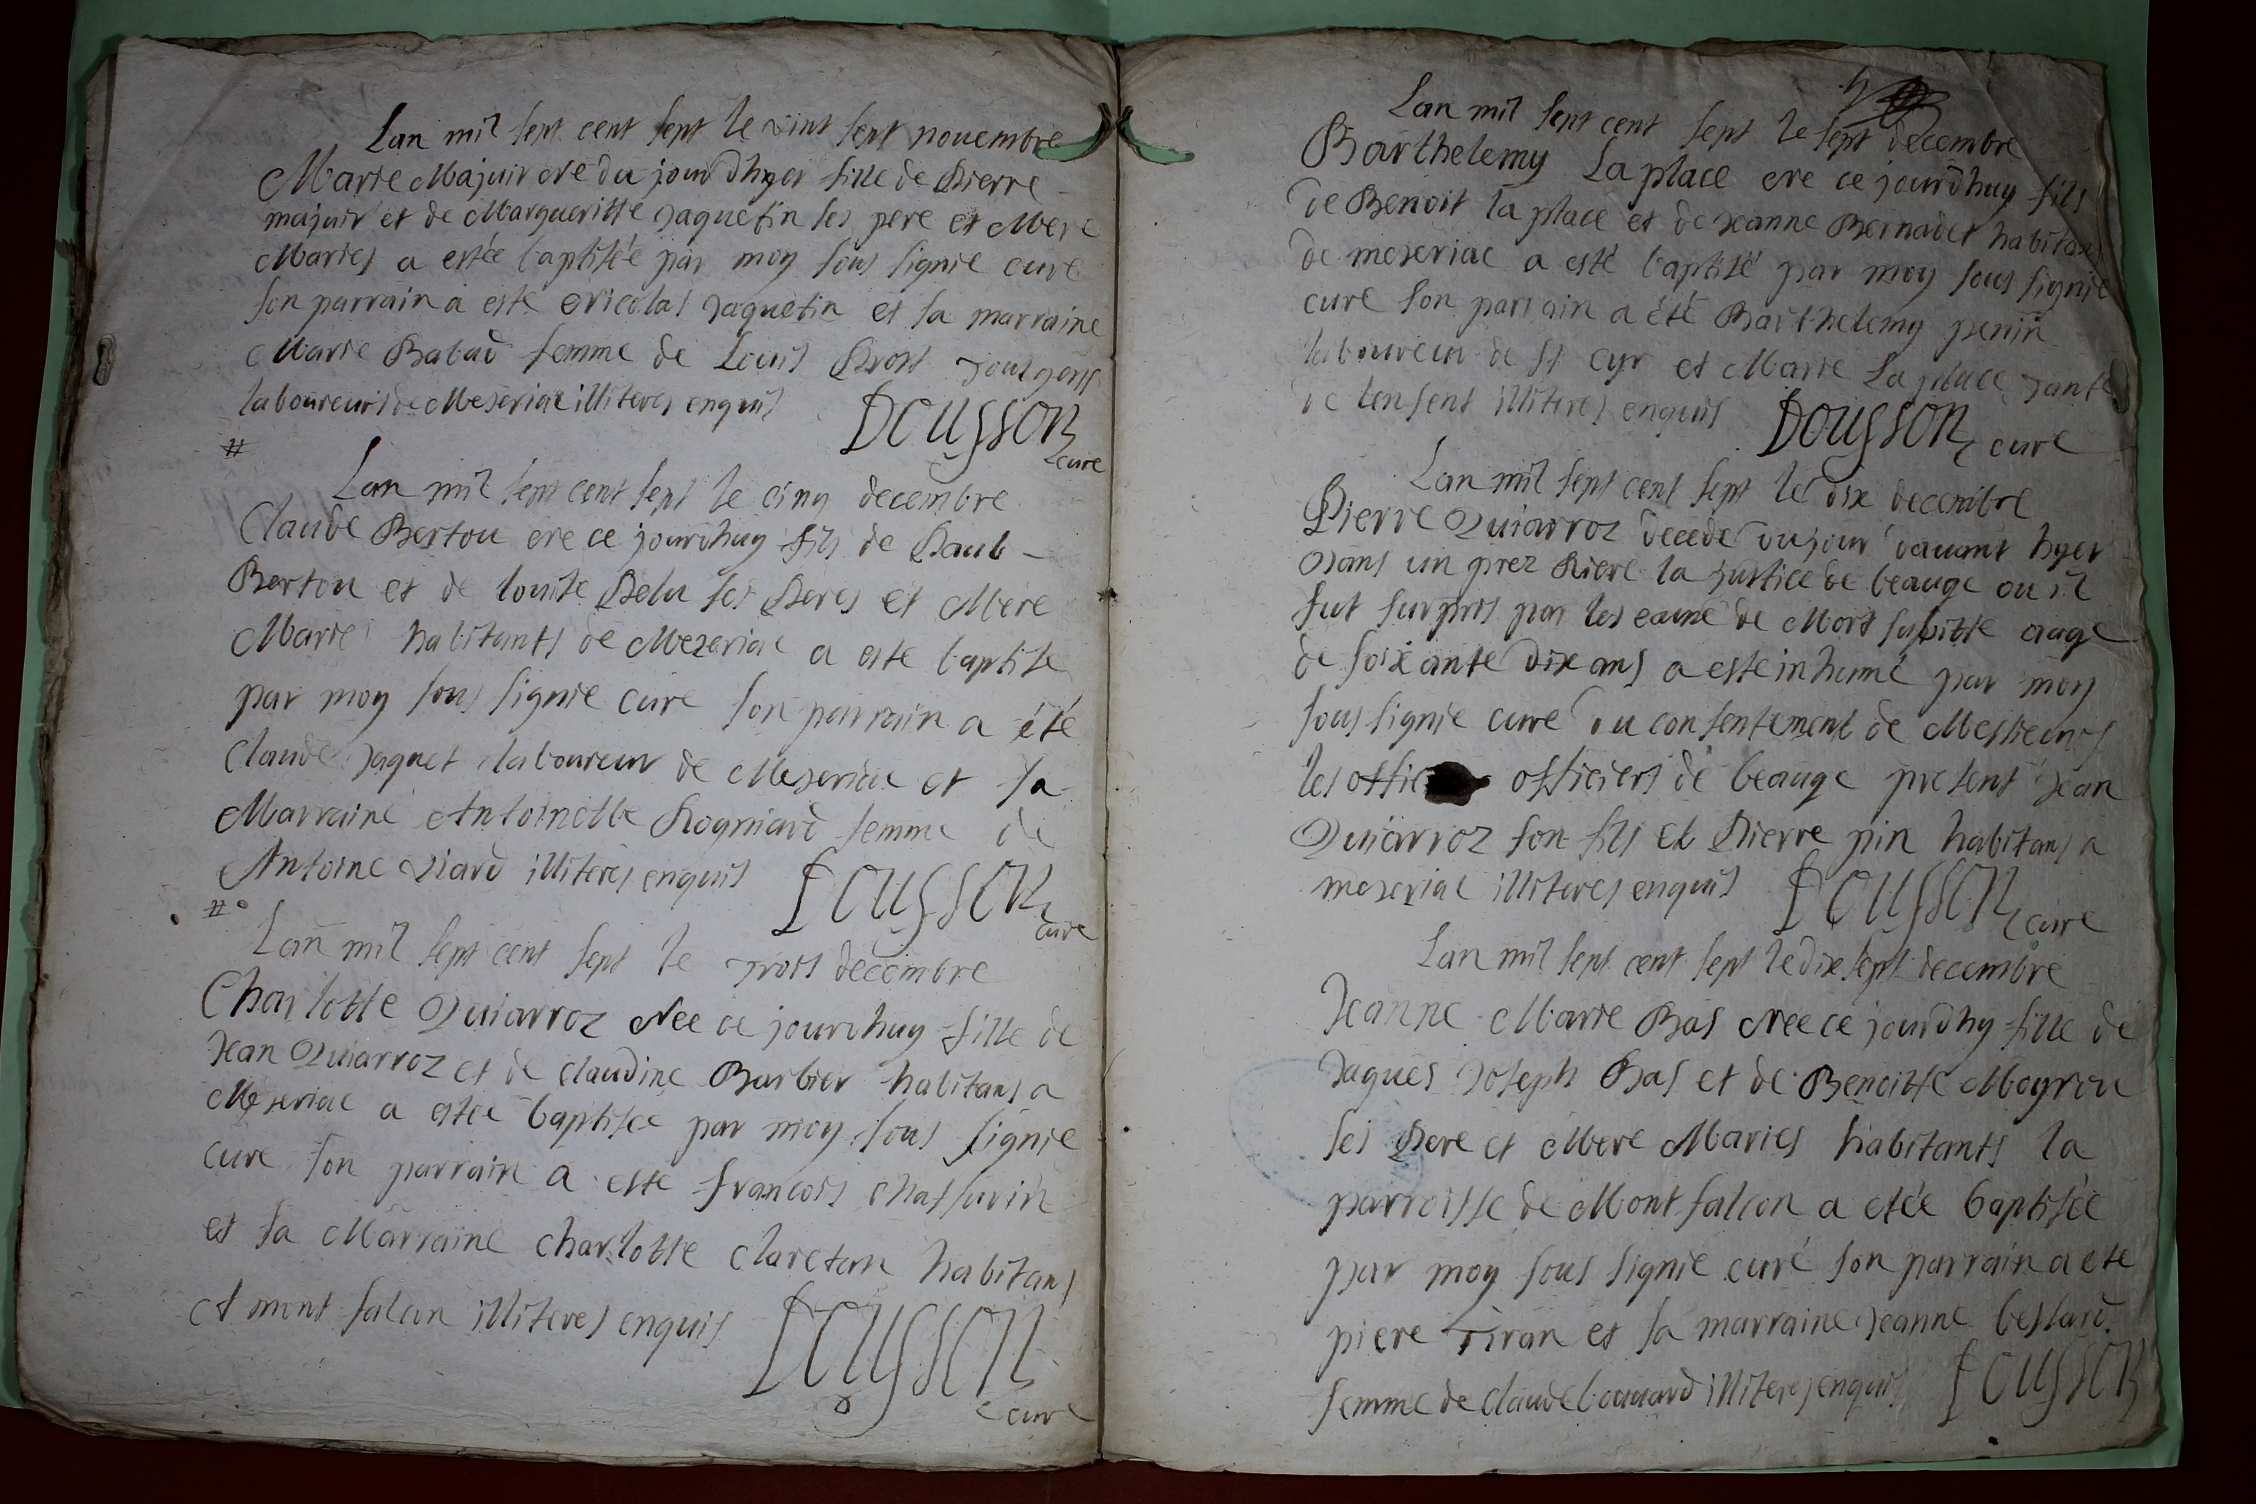 Lan mil sept cent sept le vint sept nouembre
Marie Majuir née du jourdhyer fille de Pierre
majuir et de Margueritte Jaquetin ses pere et Mere
Maries a estée baptisée par moy sous signie curé
son parrain a esté Nicolas Jaquetin et sa marraine
Marie Babad femme de Louis Prost
laboureurs de Meseriac illiteres enquis DOUSSON
curé
Lan mil sept cent sept le cinq decembre
Claude Bertou né ce jourdhuy fils de Paul
Bertou et de louise Pelu ses Peres et Mere
Maries habitants de Mezeriac a esté baptisé
par moy sous signie curé son parrain a été
Claude Jaquet laboureur de Meseriac et sa
Marraine Antoinette Rogniard femme de
Antoine Viard illiteres enquis DOUSSON
curé
Lan mil sept cent sept le trois decembre
Charlotte Quiarroz Née ce jourdhuy fille de
Jean Quiarroz et de Claudine Barbier habitans a
Meseriac a estée baptisée par moy sous signie
curé son parrain a esté francois Chassuvin
et sa Marraine charlotte claretan habitans
et mont falcon illiteres enquis DOUSSON
curé
Lan mil sept cent sept le sept decembre
Barthelemy La place né ce jourdhuy fils
de Benoit la place et de Jeanne Bernadet habitans
de meseriac a esté baptisé par moy sous signie
curé son parrain a été Barthelemy penin
laboureur de st cyr et Marie La place
de illiteres enquis DOUSSON curé
Lan mil sept cent sept le dix decembre
Pierre Quiarroz decedé du jour dauant hyer
dans un prez Riere la justice de beauge ou il
fut surpris par les eaux de Mort subitte aagé
de soixante dix ans a esté inhumé par moy
sous signie curé du consentement de Messieurs
les offic officiers de beauge present Jean
Quiarroz son fils et Pierre pin habitans a
meseriac illiteres enquis DOUSSON curé
Lan mil sept cent sept le dix sept decembre
Jeanne Marie Bas Née ce jourdhy fille de
Jaques Joseph Bas et de Benoitte Moyrou
ses Pere et Mere Maries habitants la
parroisse de Mont falcon a etée baptisée
par moy sous signie curé son parrain a eté
piere Tiran et sa marraine Jeanne beslard
femme de claude bouuard illiteres enquis DOUSSON